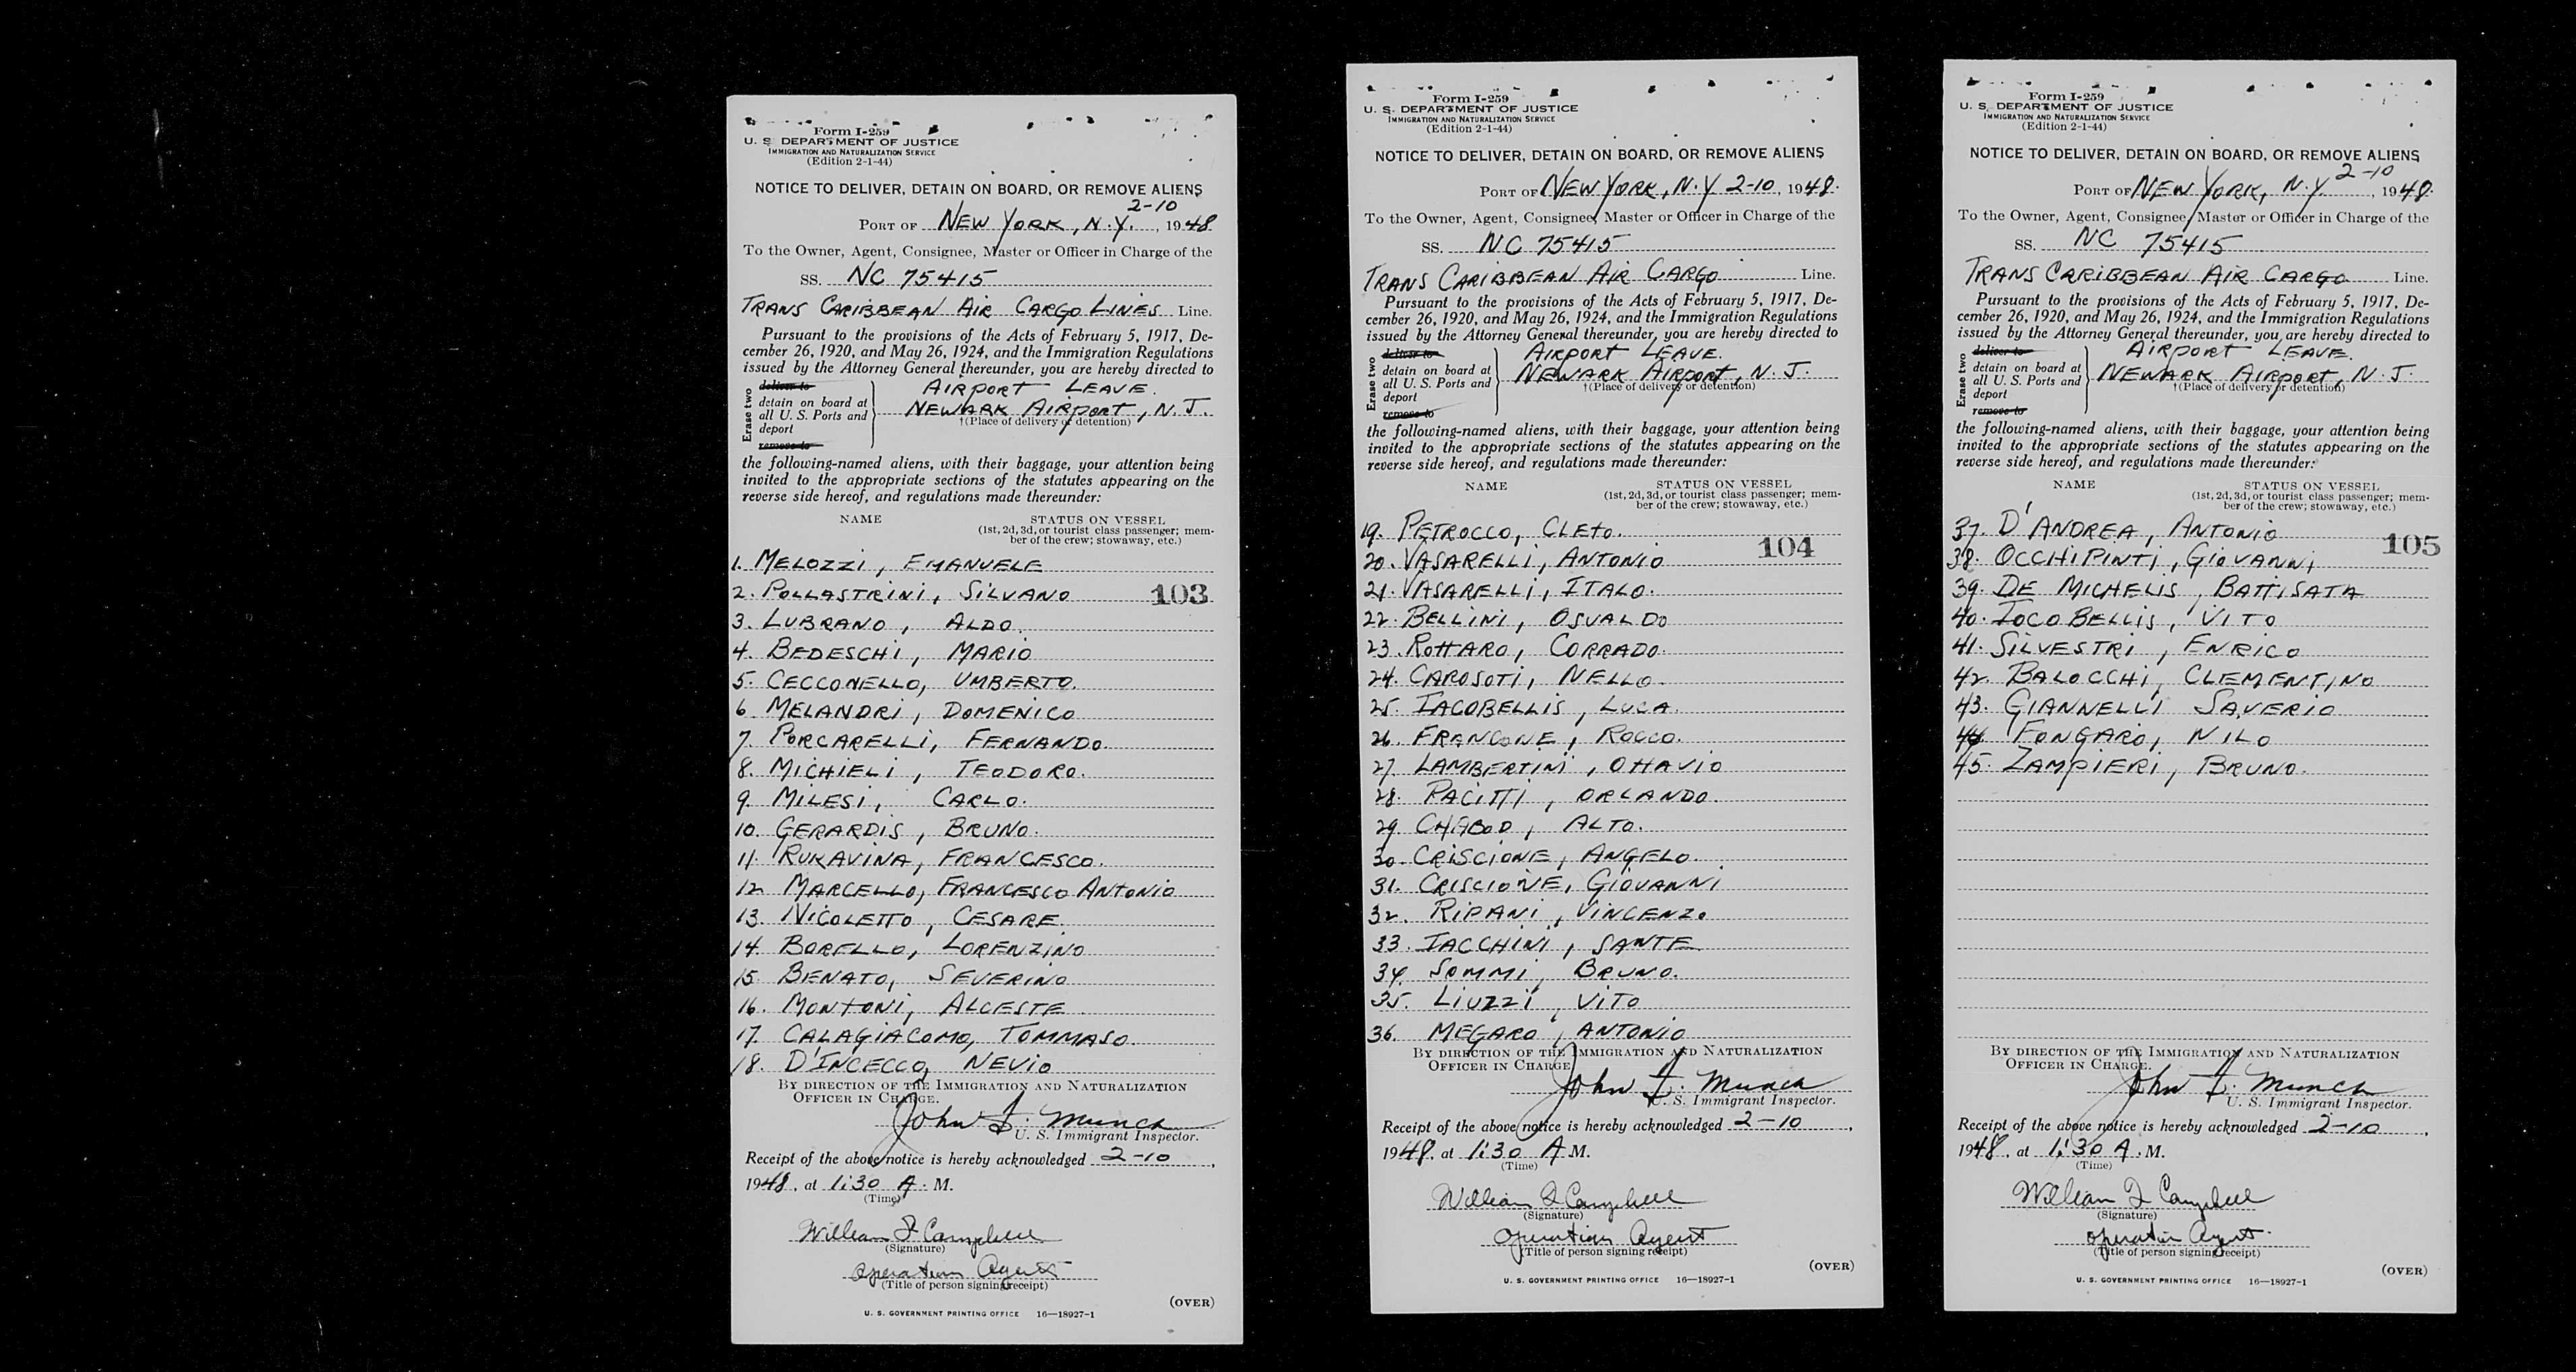 Form I-259
U. S. DEPARTMENT OF JUSTICE
IMMIGRATION AND NATURALIZATION SERVICE
(Edition 2-1-44)
NOTICE TO DELIVER, DETAIN ON BOARD, OR REMOVE ALIENS
2-10
PORT OF NEW YORK, N.Y., 1948
To the Owner, Agent, Consignee, Master or Officer in Charge of the
SS. NC 75415
TRANS CARIBBEAN AIR CARGO LINES Line.
Pursuant to the provisions of the Acts of February 5, 1917, De-
cember 26, 1920, and May 26, 1924, and the Immigration Regulations
issued by the Attorney General thereunder, you are hereby directed to
Erase two
deliver to
detain on board at
all U. S. Ports and
deport
remove to
AIRPORT LEAVE.
NEWARK AIRPORT, N.J.
†(Place of delivery or detention)
the following-named aliens, with their baggage, your attention being
invited to the appropriate sections of the statutes appearing on the
reverse side hereof, and regulations made thereunder:
NAME STATUS ON VESSEL
(1st, 2d, 3d, or tourist class passenger; mem-
ber of the crew; stowaway, etc.)
1. MELOZZI, EMANUELE
2. POLLASTRINI, SILVANO 103
3. LUBRANO, ALDO.
4. BEDESCHI, MARIO
5. CECCONELLO, UMBERTO.
6. MELANDRI, DOMENICO
7. PORCARELLI, FERNANDO.
8. MICHIELI, TEODORO.
9. MILESI, CARLO.
10. GERARDIS, BRUNO.
11. RUKAVINA, FRANCESCO.
12. MARCELLO, FRANCESCO ANTONIO
13. NICOLETTO, CESARE.
14. BORELLO, LORENZINO
15. BENATO, SEVERINO
16. MONTONI, ALCESTE
17. CALAGIACOMO, TOMMASO.
18. D'INCECCO, NEVIO
BY DIRECTION OF THE IMMIGRATION AND NATURALIZATION
OFFICER IN CHARGE.
John F. Munch
U. S. Immigrant Inspector.
Receipt of the above notice is hereby acknowledged 2-10,
1948, at 1:30 A. M.
(Time)
William F Campbell
(Signature)
Operations Agent
(Title of person signing receipt)
(OVER)
U. S. GOVERNMENT PRINTING OFFICE 16—18927-1
Form I-259
U. S. DEPARTMENT OF JUSTICE
IMMIGRATION AND NATURALIZATION SERVICE
(Edition 2-1-44)
NOTICE TO DELIVER, DETAIN ON BOARD, OR REMOVE ALIENS
PORT OF NEW YORK, N.Y 2-10, 1948.
To the Owner, Agent, Consignee, Master or Officer in Charge of the
SS. NC 75415
TRANS CARIBBEAN AIR CARGO Line.
Pursuant to the provisions of the Acts of February 5, 1917, De-
cember 26, 1920, and May 26, 1924, and the Immigration Regulations
issued by the Attorney General thereunder, you are hereby directed to
Erase two
deliver to
detain on board at
all U. S. Ports and
deport
remove to
AIRPORT LEAVE.
NEWARK AIRPORT, N.J.
†(Place of delivery or detention)
the following-named aliens, with their baggage, your attention being
invited to the appropriate sections of the statutes appearing on the
reverse side hereof, and regulations made thereunder:
NAME STATUS ON VESSEL
(1st, 2d, 3d, or tourist class passenger; mem-
ber of the crew; stowaway, etc.)
19. PETROCCO, CLETO.
20. VASARELLI, ANTONIO 104
21. VASARELLI, ITALO.
22. BELLINI, OSVALDO
23. ROTTARO, CORRADO.
24. CAROSOTI, NELLO.
25. IACOBELLIS, LUCA.
26. FRANCONE, ROCCO.
27. LAMBERTINI, OTTAVIO
28. PACITTI, ORLANDO.
29. CHABOD, ALTO.
30. CRISCIONE, ANGELO.
31. CRISCIONE, GIOVANNI
32. RIPANI, VINCENZO
33. IACCHINI, SANTE
34. SOMMI, BRUNO.
35. LIUZZI, VITO
36. MEGARO, ANTONIO
BY DIRECTION OF THE IMMIGRATION AND NATURALIZATION
OFFICER IN CHARGE
John F. Munch
U. S. Immigrant Inspector.
Receipt of the above notice is hereby acknowledged 2-10,
1948, at 1:30 A M.
(Time)
William F Campbell
(Signature)
Operations Agent
(Title of person signing receipt)
(OVER)
U. S. GOVERNMENT PRINTING OFFICE 16—18927-1
Form I-259
U. S. DEPARTMENT OF JUSTICE
IMMIGRATION AND NATURALIZATION SERVICE
(Edition 2-1-44)
NOTICE TO DELIVER, DETAIN ON BOARD, OR REMOVE ALIENS
2-10
PORT OF NEW YORK, N.Y., 1948.
To the Owner, Agent, Consignee, Master or Officer in Charge of the
SS. NC 75415
TRANS CARIBBEAN AIR CARGO Line.
Pursuant to the provisions of the Acts of February 5, 1917, De-
cember 26, 1920, and May 26, 1924, and the Immigration Regulations
issued by the Attorney General thereunder, you are hereby directed to
Erase two
deliver to
detain on board at
all U. S. Ports and
deport
remove to
AIRPORT LEAVE.
NEWARK AIRPORT, N.J.
†(Place of delivery or detention)
the following-named aliens, with their baggage, your attention being
invited to the appropriate sections of the statutes appearing on the
reverse side hereof, and regulations made thereunder:
NAME STATUS ON VESSEL
(1st, 2d, 3d, or tourist class passenger; mem-
ber of the crew; stowaway, etc.)
37. D'ANDREA, ANTONIO 105
38. OCCHIPINTI, GIOVANNI
39. DE MICHELIS, BATTISATA
40. IOCOBELLIS, VITO
41. SILVESTRI, ENRICO
42. BALOCCHI, CLEMENTINO
43. GIANNELLI SAVERIO
44 FONGARO, NILO
45. ZAMPIERI, BRUNO.
BY DIRECTION OF THE IMMIGRATION AND NATURALIZATION
OFFICER IN CHARGE.
John F. Munch
U. S. Immigrant Inspector.
Receipt of the above notice is hereby acknowledged 2-10,
1948, at 1:30 A. M.
(Time)
William F Campbell
(Signature)
Operation Agent
(Title of person signing receipt)
(OVER)
U. S. GOVERNMENT PRINTING OFFICE 16—18927-1